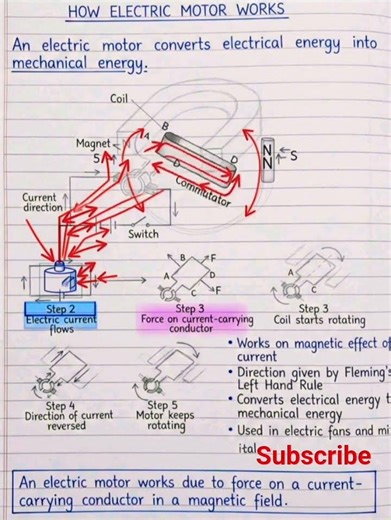 HOW ELECTRIC MOTOR WORKS
An electric motor converts electrical energy into
mechanical energy.
Coil
B
A
Magnet
S
D
D
N
N
S
Commutator
Current
direction
Switch
B
F
A
D
C
F
A
C
Step 2
Electric current
flows
Step 3
Force on current-carrying
conductor
Step 3
Coil starts rotating
Step 4
Direction of current
reversed
Step 5
Motor keeps
rotating
• Works on magnetic effect of
current
• Direction given by Fleming's
Left Hand Rule
• Converts electrical energy t
mechanical energy
• Used in electric fans and mi
ital
Subscribe
An electric motor works due to force on a current-
carrying conductor in a magnetic field.